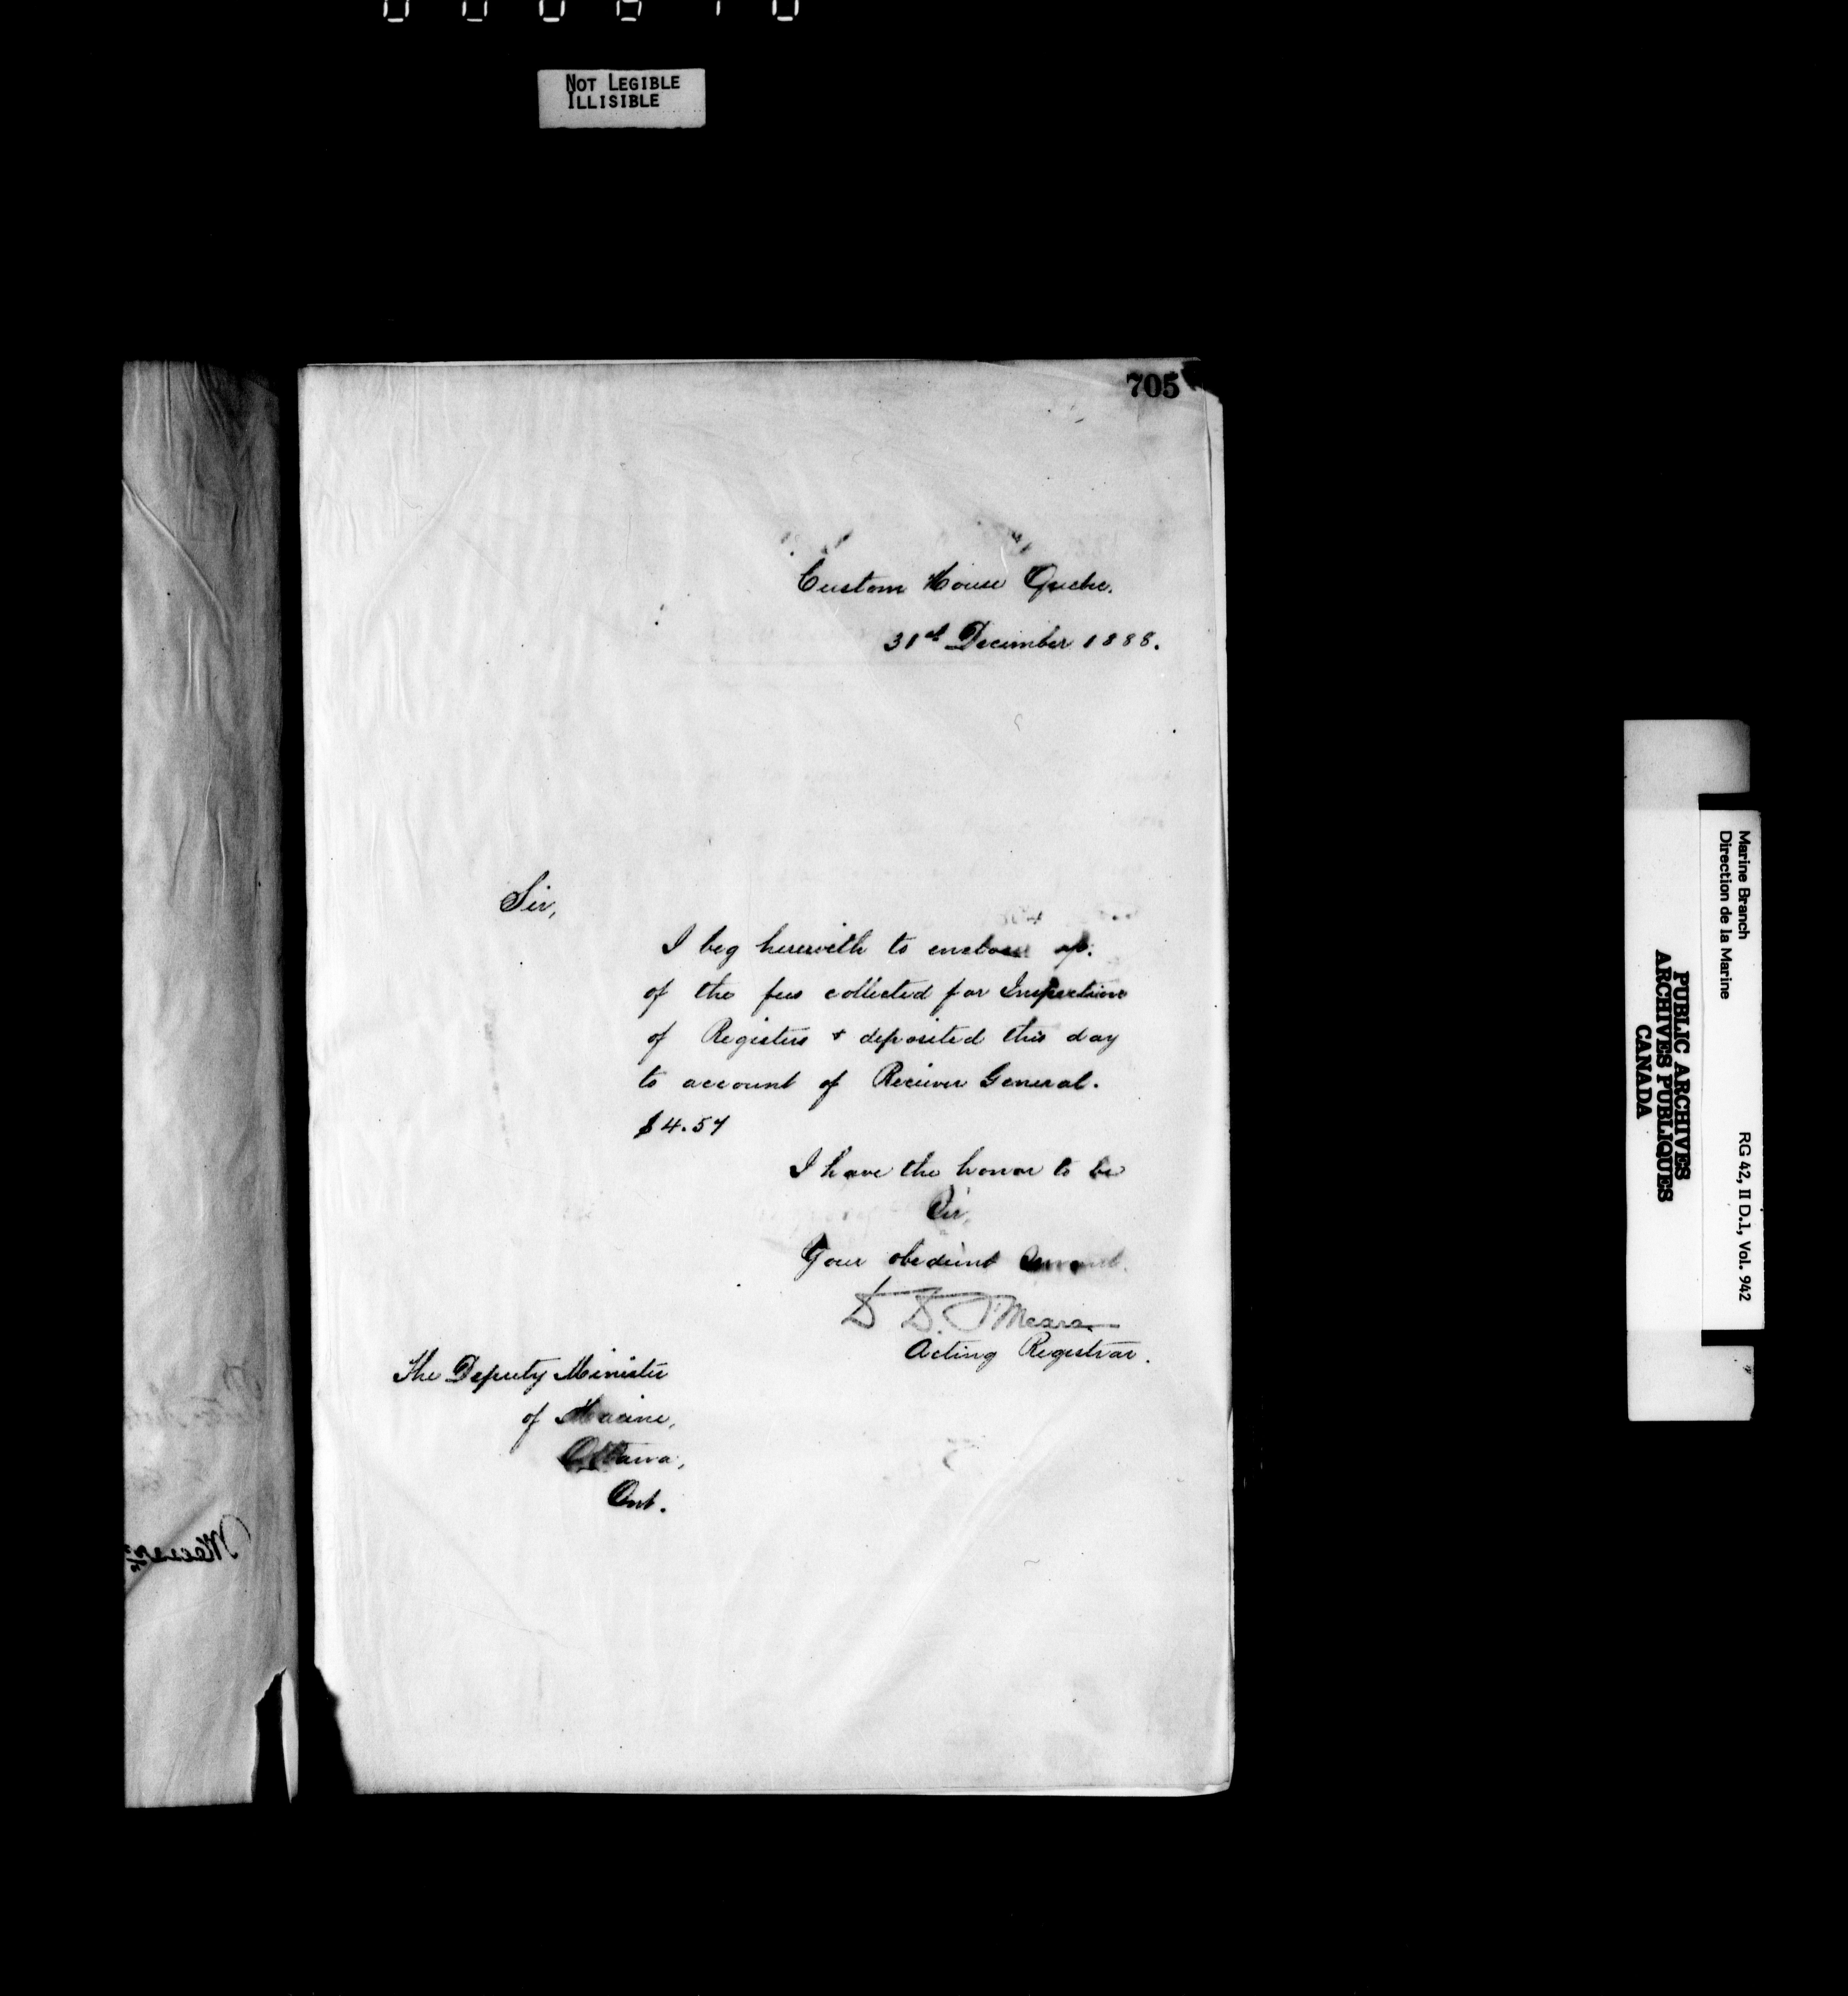 NOT LEGIBLE
ILLISIBLE
705
Custom House Quebec.
31st December 1888.
Sir,
I beg herewith to enclose
of the fees collected for Inspections
of Registers & deposited this day
to account of Receiver General.
$4.57
I have the honor to be
Sir,
Your obedient Servant.
D D. O'Meara
Acting Registrar.
The Deputy Minister
of Marine,
Ottawa,
Ont.
Marine Branch
Direction de la Marine
RG 42, II D.1, Vol. 942
PUBLIC ARCHIVES
ARCHIVES PUBLIQUES
CANADA